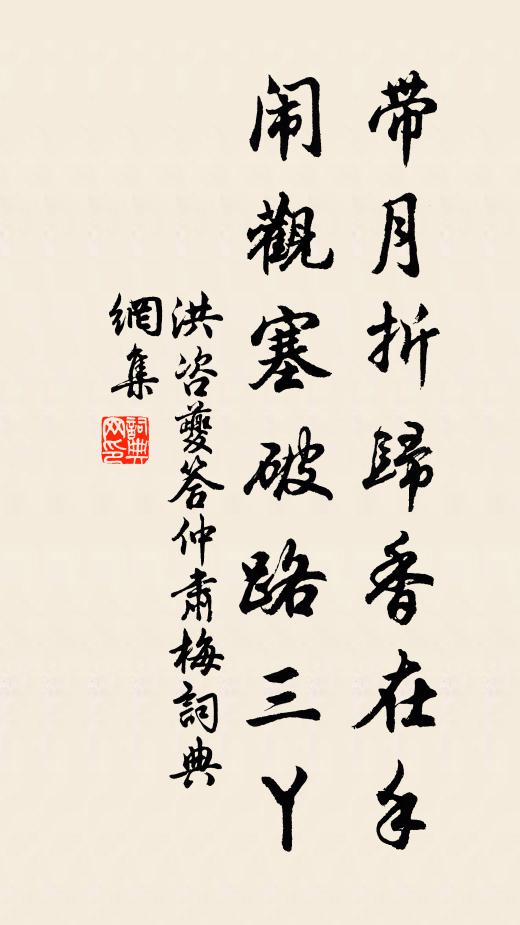 带月折歸香在手
闹觀塞破路三丫
洪咨夔答仲肅梅詞典
網集
詞典
网印